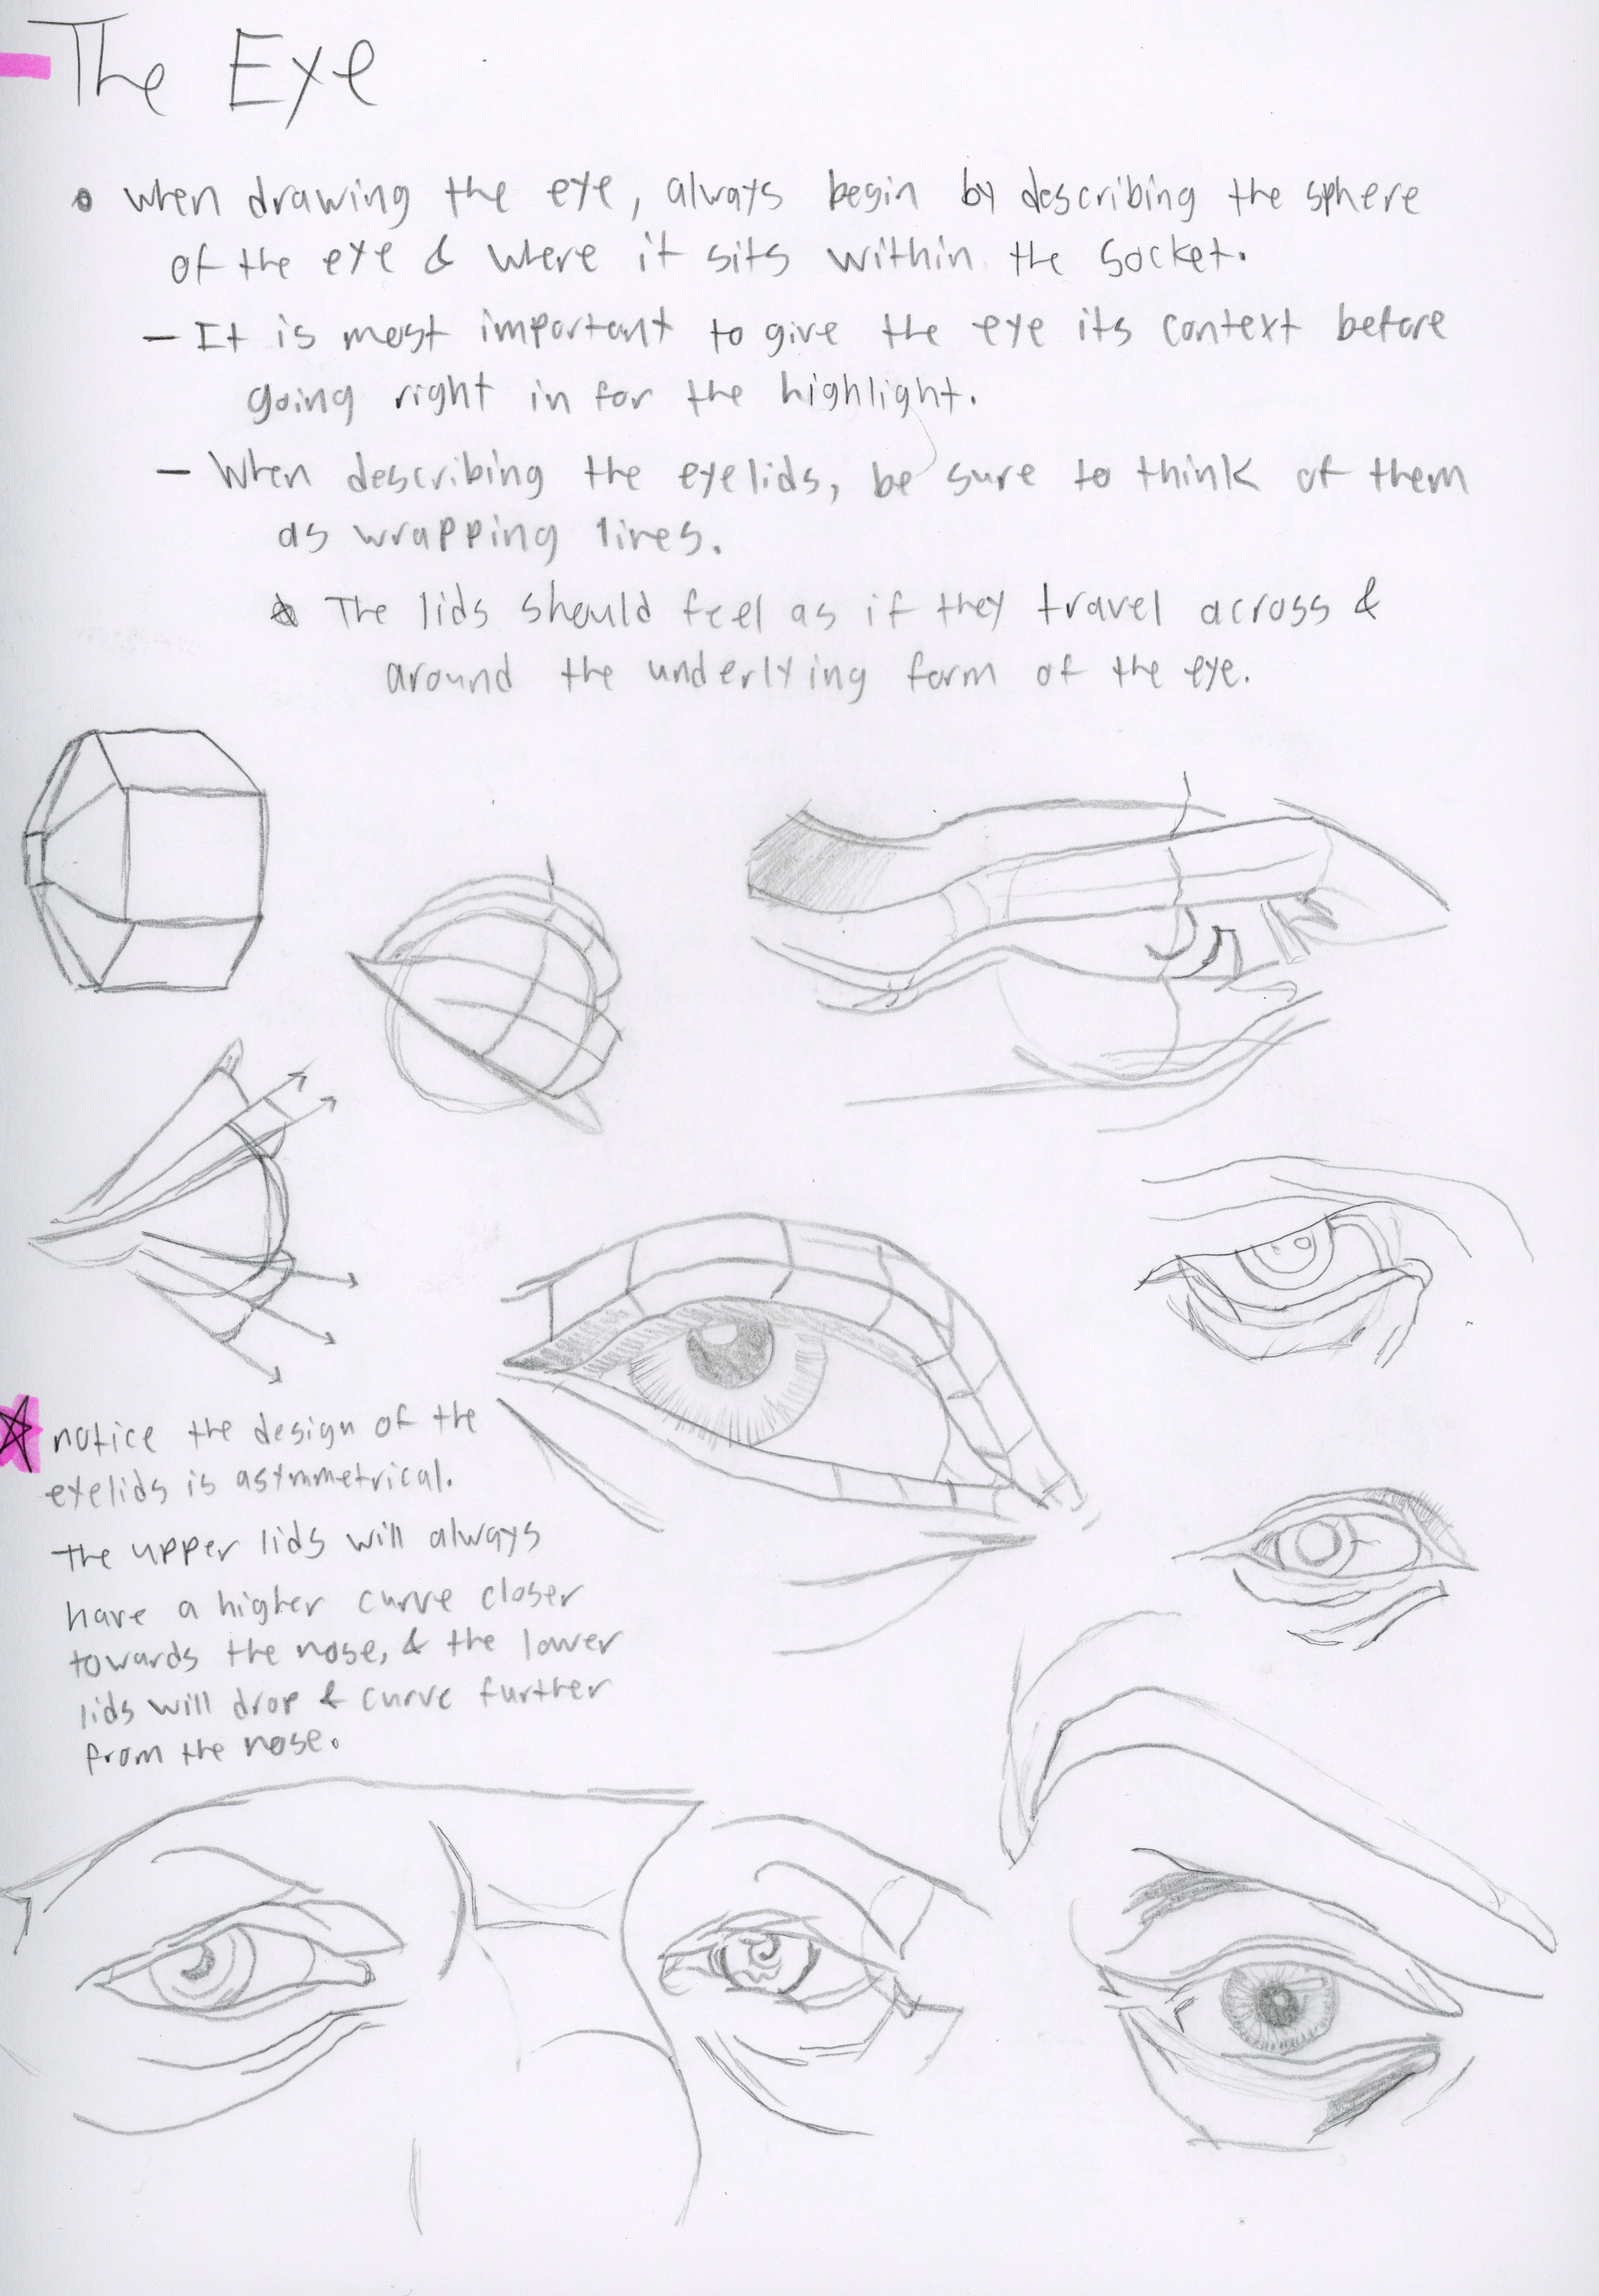 The Eye
• when drawing the eye, always begin by describing the sphere
of the eye & where it sits within the socket.
- It is most important to give the eye its context before
going right in for the highlight.
- When describing the eyelids, be sure to think of them
as wrapping lines.
☆ The lids should feel as if they travel across &
around the underlying form of the eye.
☆ notice the design of the
eyelids is asymmetrical.
the upper lids will always
have a higher curve closer
towards the nose, & the lower
lids will drop & curve further
from the nose.